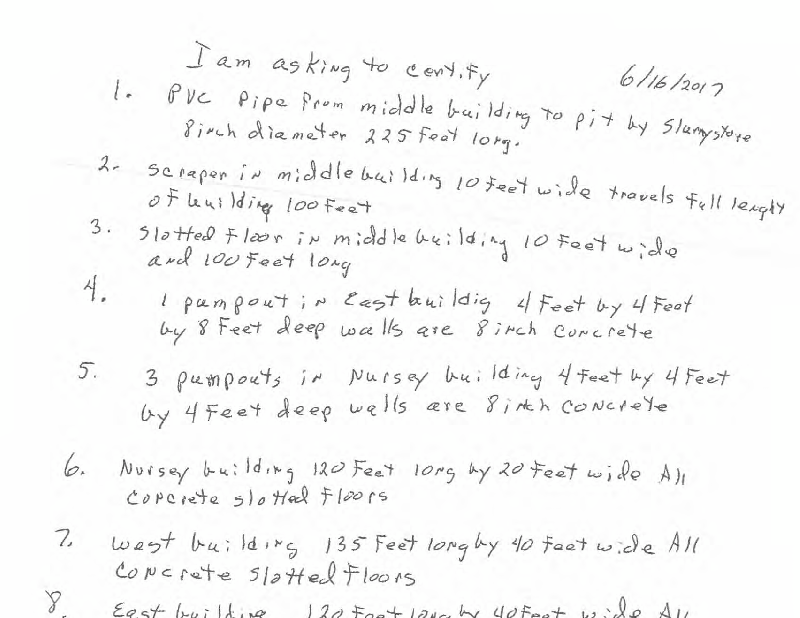 I am asking to certify
6/16/2017
1. PVC Pipe From middle building to pit by Slurrystore
8inch diameter 225 Feet long.
2. scraper in middle building 10 Feet wide travels full lenght
of building 100 Feet
3. slotted Floor in middle building 10 Feet wide
and 100 Feet long
4. 1 pumpout in East buildig 4 Feet by 4 Feet
by 8 Feet deep walls are 8 inch concrete
5. 3 pumpouts in Nursey building 4 Feet by 4 Feet
by 4 Feet deep walls are 8 inch concrete
6. Nursey building 120 Feet long by 20 Feet wide All
concrete slotted Floors
7. West building 135 Feet long by 40 Feet wide All
concrete slotted Floors
8. East building 120 Feet long by 40 Feet wide All